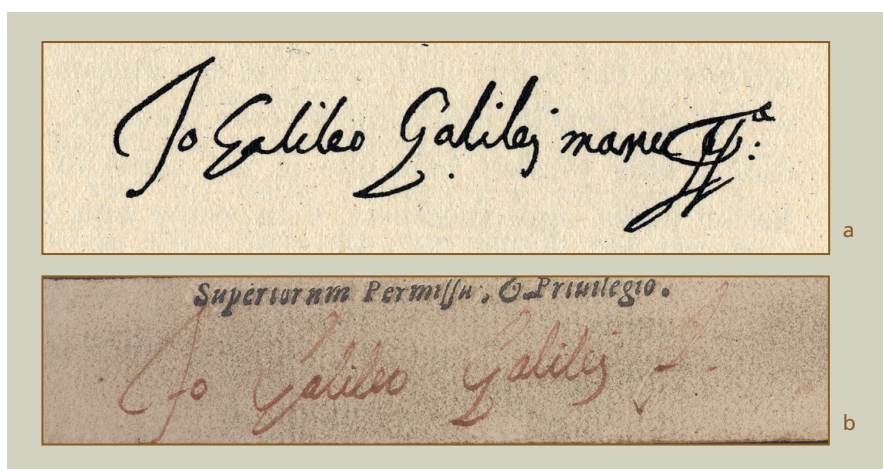 Io Galileo Galilej manu
a
Superiorum Permissu, & Priuilegio.
Io Galileo Galilej F.
b